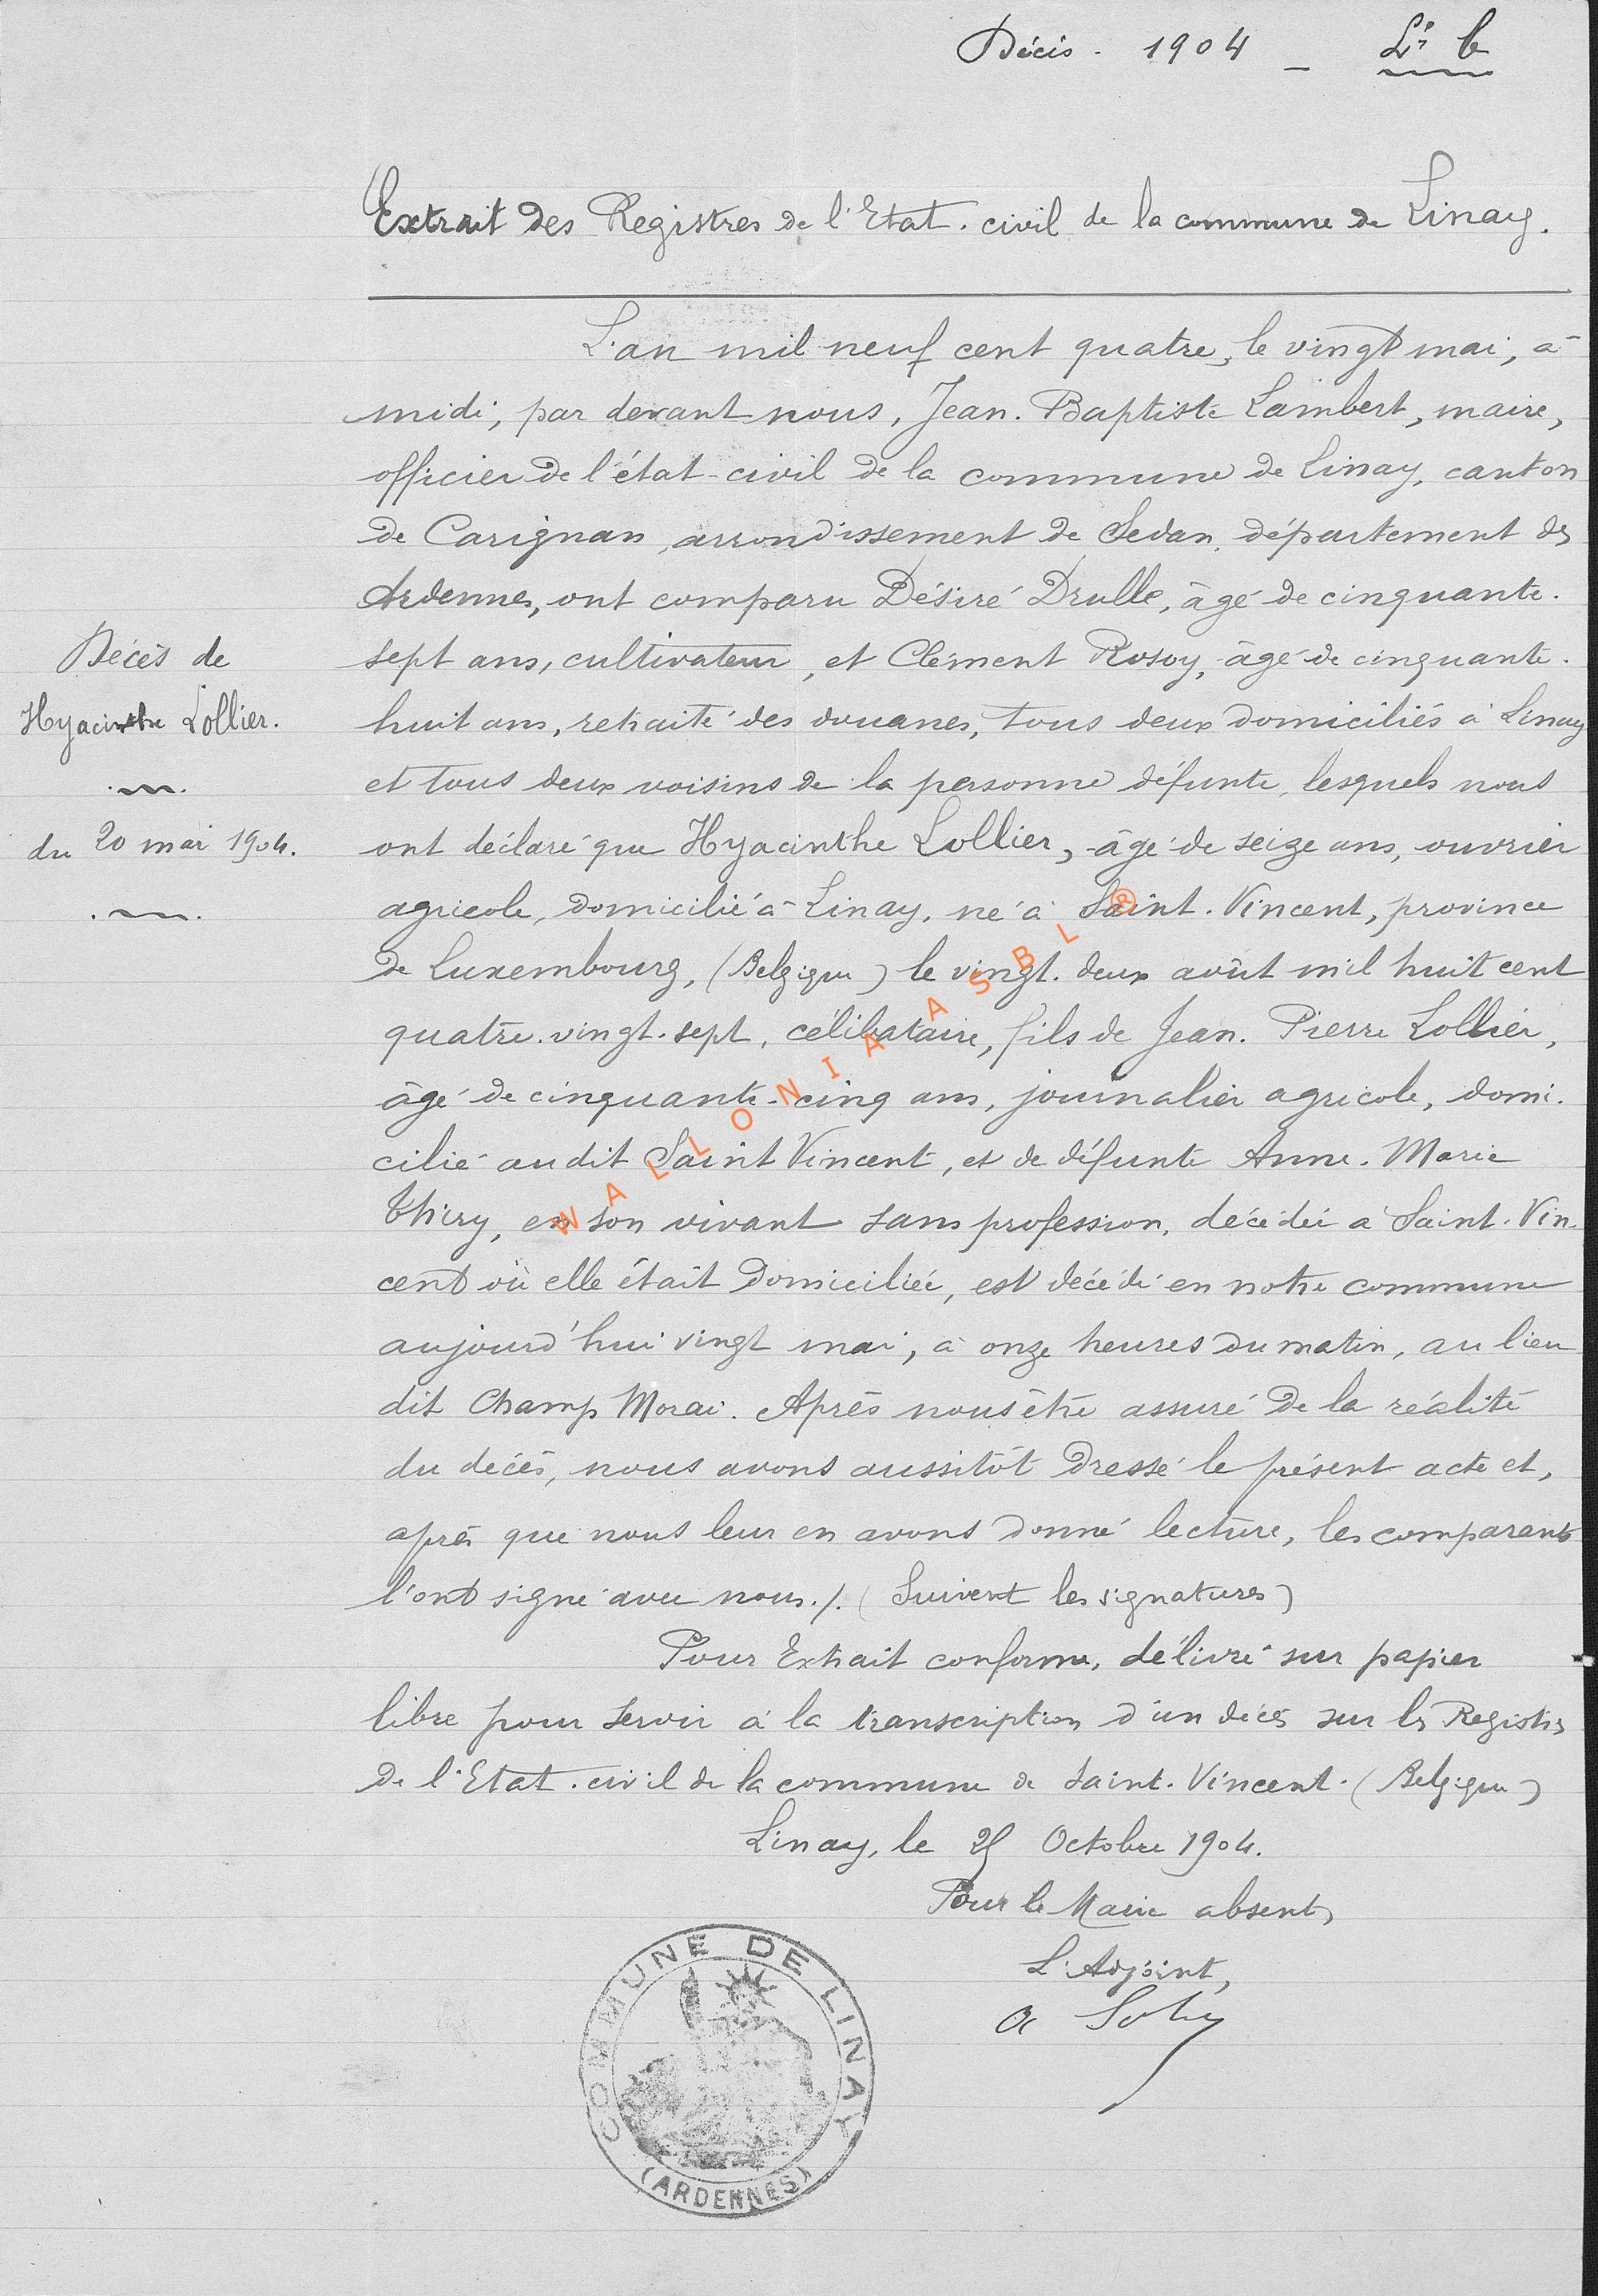 Décès - 1904 -
Extrait des Registres de l'Etat-civil de la commune de Linay.
L'an mil neuf cent quatre, le vingt mai, à
midi, par devant nous, Jean-Baptiste Lambert, maire,
officier de l'état-civil de la commune de Linay, canton
de Carignan, arrondissement de Sedan, département des
Ardennes, ont comparu Désiré Drulle, âgé de cinquante-
sept ans, cultivateur, et Clément Rosoy, âgé de cinquante-
huit ans, retraité des douanes, tous deux domiciliés à Linay
et tous deux voisins de la personne défunte, lesquels nous
ont déclaré que Hyacinthe Lollier, âgé de seize ans, ouvrier
agricole, domicilié à Linay, né à Saint-Vincent, province
de Luxembourg, (Belgique) le vingt-deux août mil huit cent
quatre-vingt-sept, célibataire, fils de Jean-Pierre Lollier,
âgé de cinquante-cinq ans, journalier agricole, domi-
cilié audit Saint Vincent, et de défunte Anne-Marie
Thiry, en son vivant sans profession, décédée à Saint-Vin-
cent où elle était domiciliée, est décédé en notre commune
aujourd'hui vingt mai, à onze heures du matin, au lieu
dit Champ Morai. Après nous être assuré de la réalité
du décès, nous avons aussitôt dressé le présent acte et,
après que nous leur en avons donné lecture, les comparants
l'ont signé avec nous./. (Suivent les signatures)
Pour Extrait conforme, délivré sur papier
libre pour servir à la transcription d'un décès sur les Registres
de l'Etat-civil de la commune de Saint-Vincent-(Belgique)
Linay, le Octobre 1904.
Pour le Maire absent,
L'Adjoint,
Décès de
Hyacinthe Lollier.
du 20 mai 1904.
COMMUNE DE LINAY
(ARDENNES)
WALLONIA ASBL ®